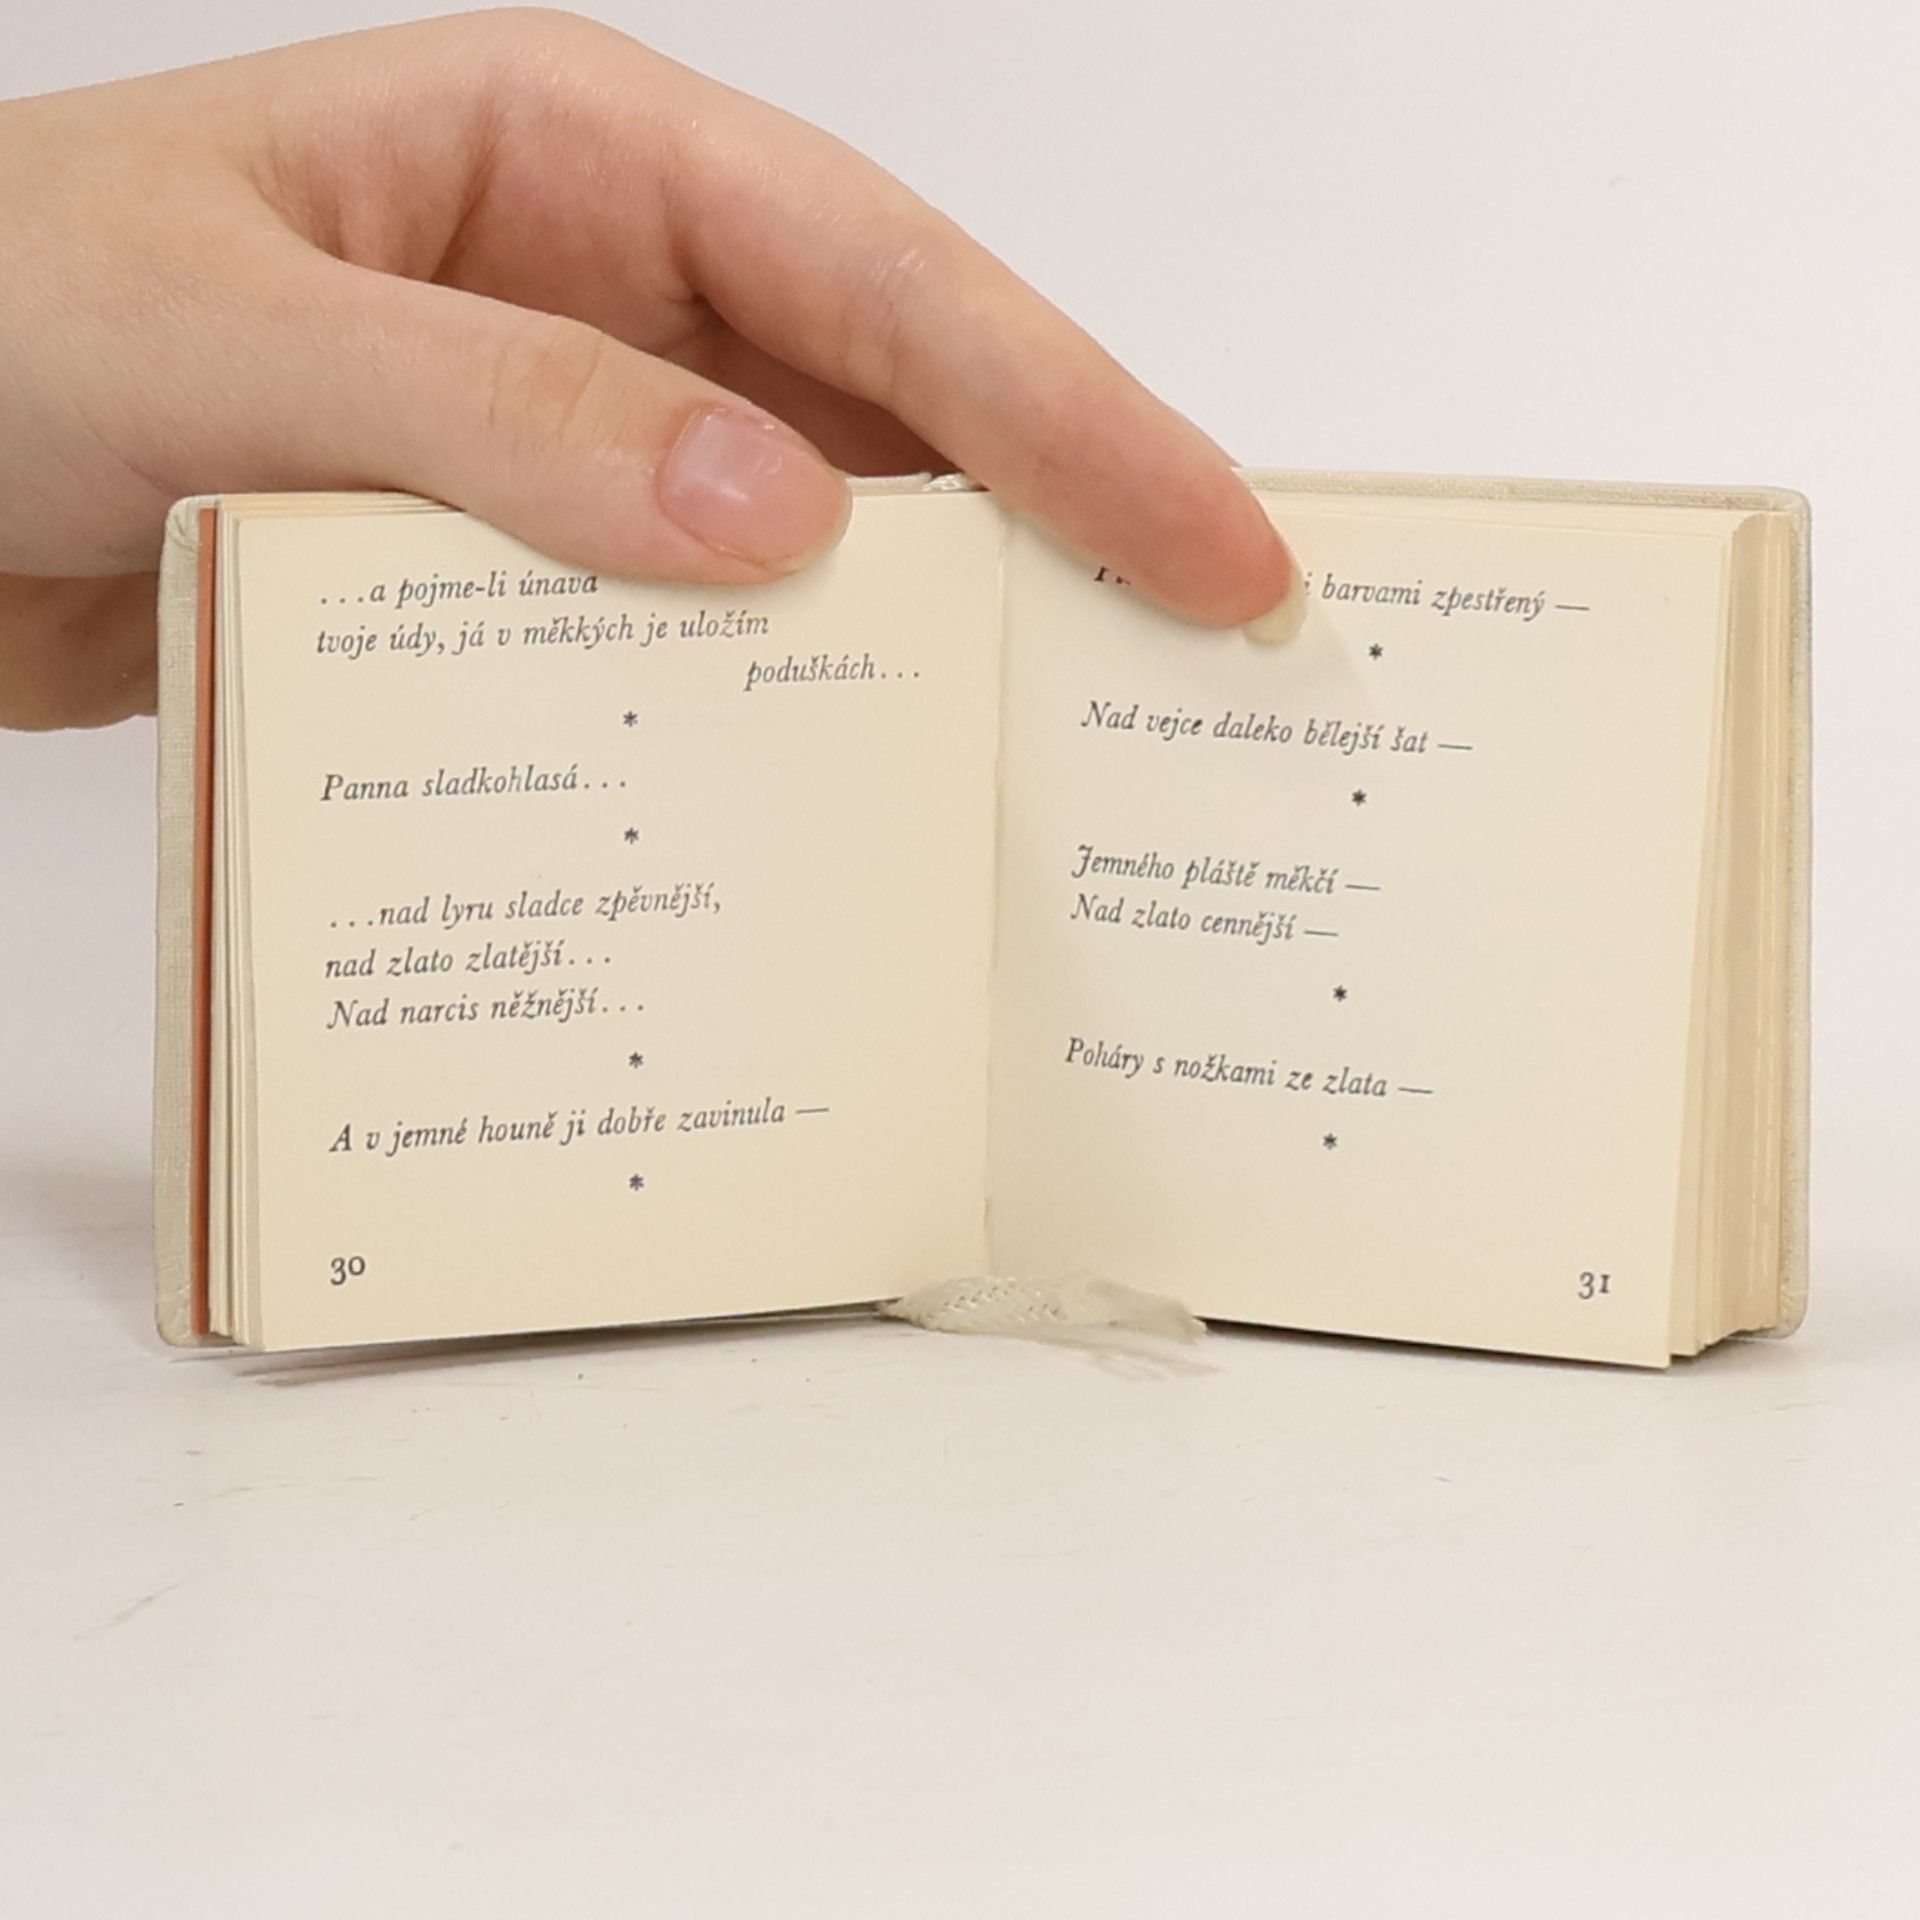 ...a pojme-li únava
tvoje údy, já v měkkých je uložím
poduškách...
*
Panna sladkohlasá...
*
...nad lyru sladce zpěvnější,
nad zlato zlatější...
Nad narcis něžnější...
*
A v jemné houně ji dobře zavinula —
*
30
barvami zpestřený —
*
Nad vejce daleko bělejší šat —
*
Jemného pláště měkčí —
Nad zlato cennější —
*
Poháry s nožkami ze zlata —
*
31